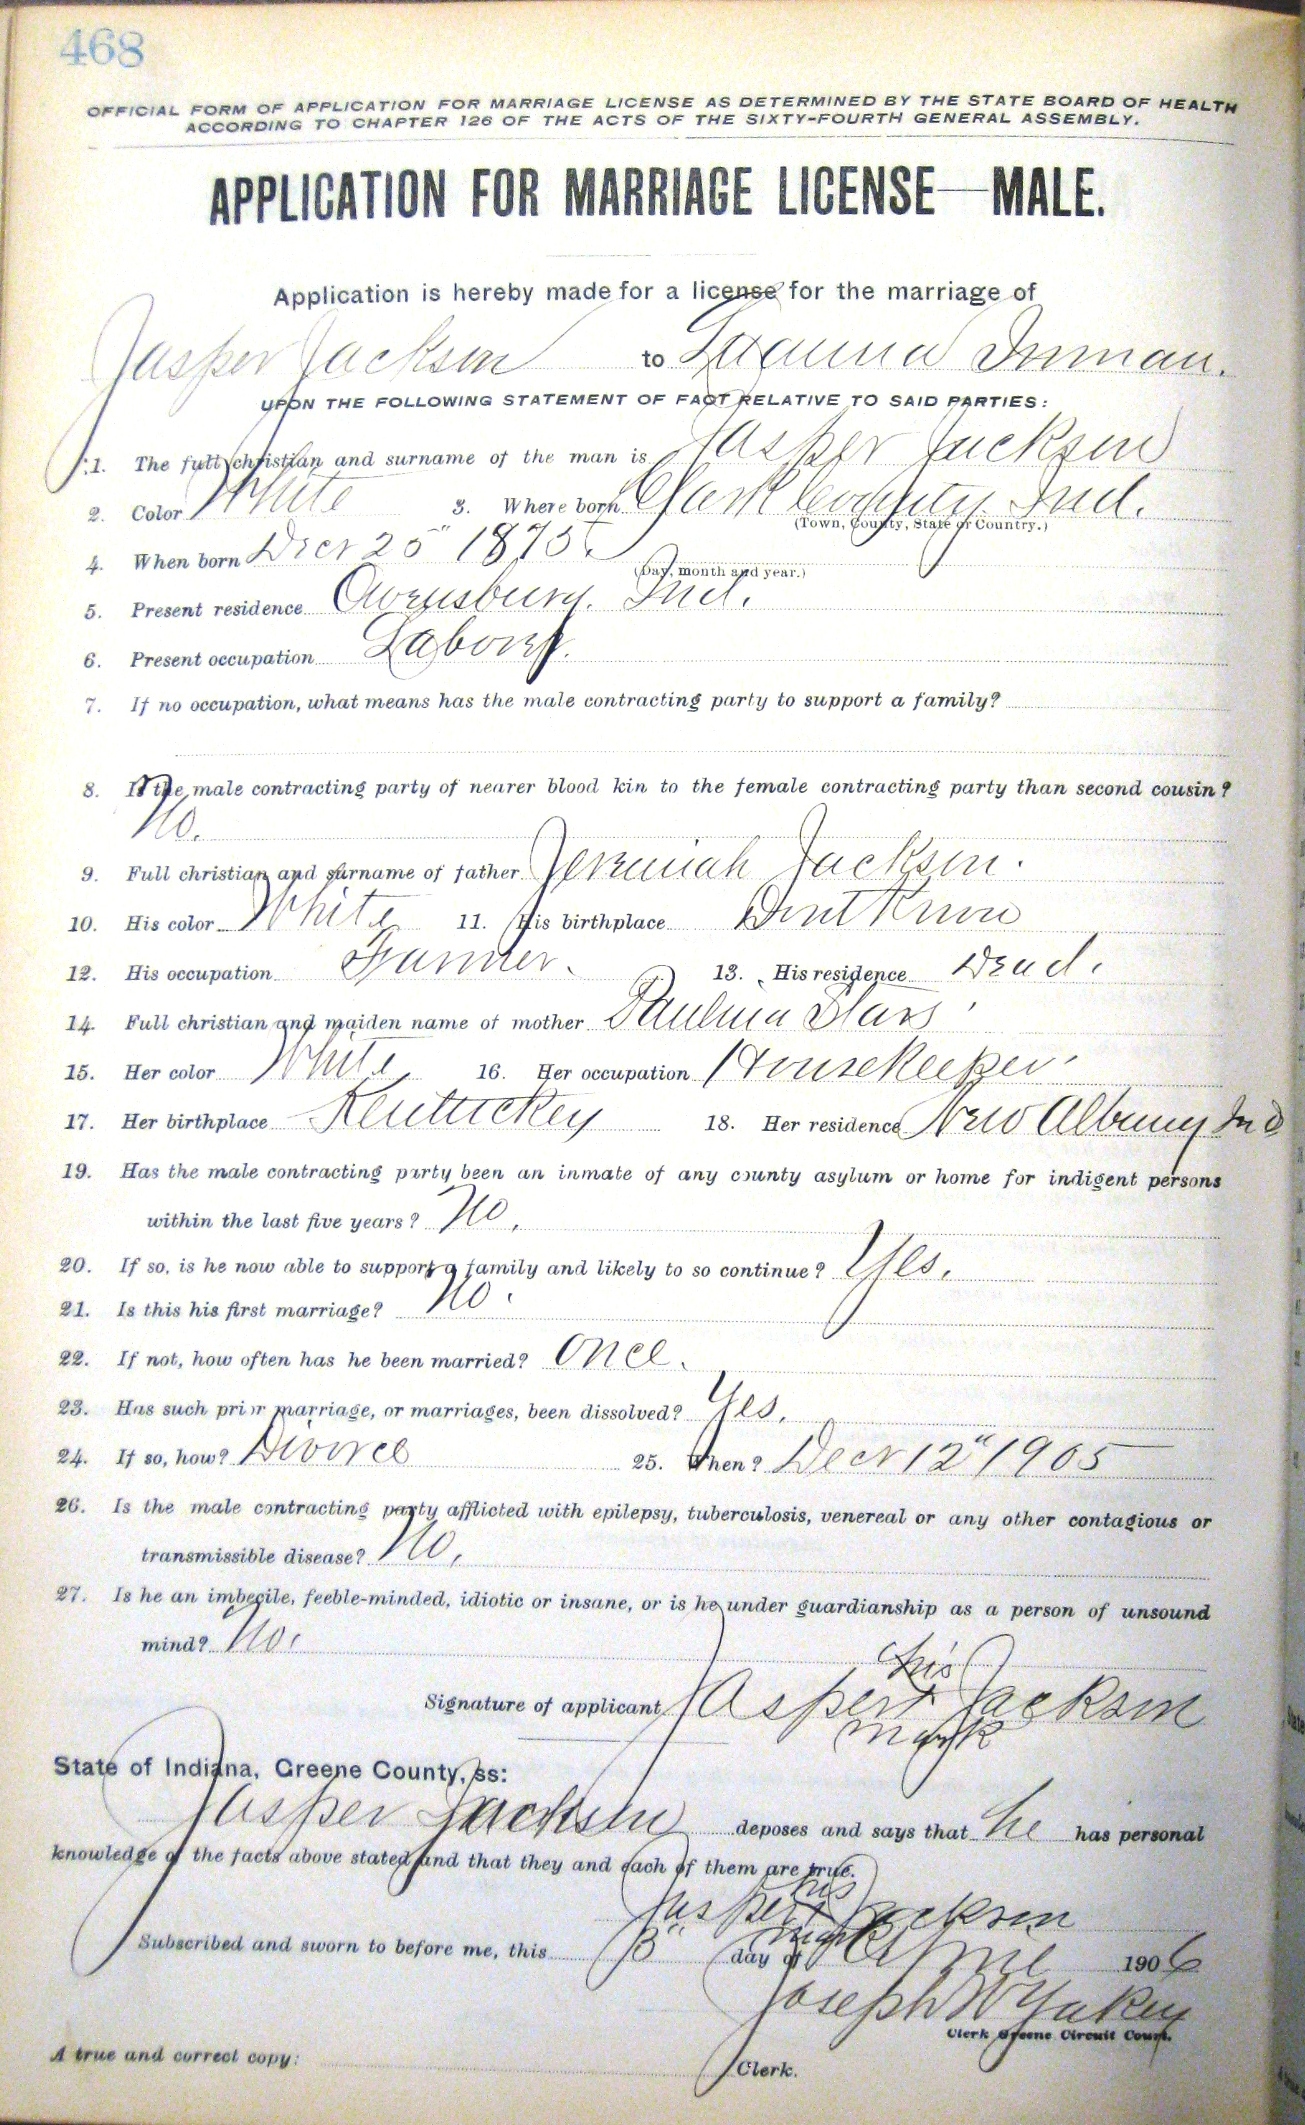 468
OFFICIAL FORM OF APPLICATION FOR MARRIAGE LICENSE AS DETERMINED BY THE STATE BOARD OF HEALTH
ACCORDING TO CHAPTER 126 OF THE ACTS OF THE SIXTY-FOURTH GENERAL ASSEMBLY.
APPLICATION FOR MARRIAGE LICENSE—MALE.
Application is hereby made for a license for the marriage of
Jasper Jackson to Inman.
UPON THE FOLLOWING STATEMENT OF FACT RELATIVE TO SAID PARTIES:
1. The full christian and surname of the man is Jasper Jackson
2. Color White 3. Where born Clark County Ind.
(Town, County, State or Country.)
4. When born Decr 25" 1875.
(Day, month and year.)
5. Present residence Owensburg. Ind.
6. Present occupation Laborer.
7. If no occupation, what means has the male contracting party to support a family?
8. Is the male contracting party of nearer blood kin to the female contracting party than second cousin?
No.
9. Full christian and surname of father Jeremiah Jackson.
10. His color White 11. His birthplace Dont Know
12. His occupation Farmer. 13. His residence Dead.
14. Full christian and maiden name of mother Paulina
15. Her color White 16. Her occupation Housekeeper.
17. Her birthplace Kentuckey 18. Her residence New Albany Ind
19. Has the male contracting party been an inmate of any county asylum or home for indigent persons
within the last five years? No.
20. If so, is he now able to support a family and likely to so continue? Yes.
21. Is this his first marriage? No.
22. If not, how often has he been married? Once.
23. Has such prior marriage, or marriages, been dissolved? Yes.
24. If so, how? Divorce 25. When? Decr 12" 1905
26. Is the male contracting party afflicted with epilepsy, tuberculosis, venereal or any other contagious or
transmissible disease? No.
27. Is he an imbecile, feeble-minded, idiotic or insane, or is he under guardianship as a person of unsound
mind? No.
his
Signature of applicant Jasper x Jackson
mark
State of Indiana, Greene County, ss:
Jasper Jackson deposes and says that he has personal
knowledge of the facts above stated and that they and each of them are true.
his
Jasper x Jackson
mark
Subscribed and sworn to before me, this day of 1906
Joseph W Yakey
Clerk Greene Circuit Court.
A true and correct copy: Clerk.